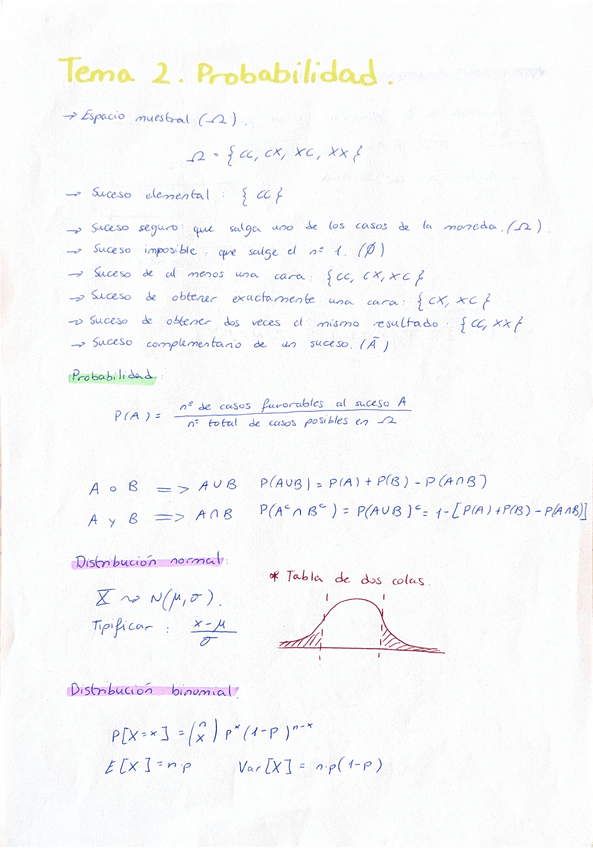 Tema 2. Probabilidad.
→ Espacio muestral (Ω).
Ω = { CC, CX, XC, XX }
→ Suceso elemental : { CC }
→ Suceso seguro: que salga uno de los casos de la moneda. (Ω).
→ Suceso imposible : que salge el nº 1. (Ø)
→ Suceso de al menos una cara : { CC, CX, XC }
→ Suceso de obtener exactamente una cara : { CX, XC }
→ Suceso de obtener dos veces el mismo resultado : { CC, XX }
→ Suceso complementario de un suceso. (Ā)
Probabilidad :
P(A) = nº de casos favorables al suceso A
nº total de casos posibles en Ω
A o B => A∪B P(A∪B) = P(A) + P(B) - P(A∩B)
A y B => A∩B P(Aᶜ∩Bᶜ) = P(A∪B)ᶜ = 1-[P(A)+P(B)-P(A∩B)]
Distribución normal:
* Tabla de dos colas.
X ~> N(μ,σ).
Tipificar : x-μ
σ
Distribución binomial:
P[X=x] = (n x) pˣ (1-p)ⁿ⁻ˣ
E[X] = n·p Var[X] = n·p(1-p)